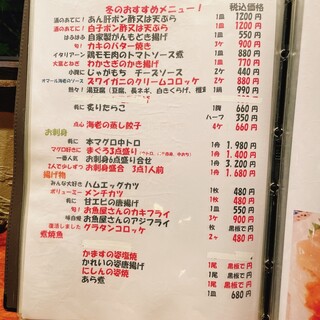 冬のおすすめメニュー! 税込価格
酒のあてに! あん肝ポン酢又は天ぷら 1皿 1200円
酒のあてに! 白子ポン酢又は天ぷら 1皿 1200円
はふはふ 自家製がんもどき揚げ 1皿 550円
旬! カキのバター焼き 3ケ 900円
イタリアーン 鶏モモ肉のトマトソース煮 1皿 880円
大葉とねぎ わかさぎのかき揚げ 1皿 680円
小腹に じゃがもち チーズソース 2ケ 440円
オマール海老のソース ズワイガニのクリームコロッケ 1ケ 880円
熱々! 湯豆腐(豆腐、長ネギ、白菜、えのきくらげ、榎 1鍋 990円
旬に 炙りたらこ 1腹 660円
ハーフ 350円
点心 海老の蒸し餃子 4ケ 660円
お刺身
旬に 本マグロ中トロ 1舟 1.980円
マグロ好きに まぐろ3点盛り 1舟 1.400円
一番人気 お刺身6点盛り合せ 1舟 1.300円
2人で少しずつ お刺身盛合 3点1人前 1舟 1.680円
揚げ物
みんな大好き ハムエッグカツ 1枚 480円
ボリューミー メンチカツ 1枚 480円
旬に 甘エビの唐揚げ 1皿 550円
旬! お魚屋さんのカキフライ 3ケ 900円
味自慢 お魚屋さんのアジフライ 枚 黒板で円
復活しました グラタンコロッケ 2ケ 480円
煮焼魚
かますの姿塩焼 1尾 黒板で円
かれいの姿唐揚げ 1尾 黒板で円
にしんの姿焼 1尾 黒板で円
あら煮 1皿 680円